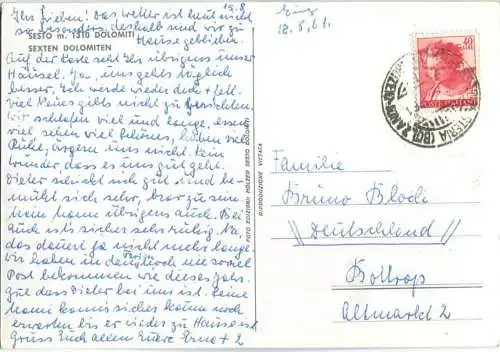 15.8
Ihr Lieben! Das Wetter ist heut nicht
so besonders deshalb sind wir zu
Hause geblieben.
SESTO m. 1310 DOLOMITI
SEXTEN DOLOMITEN
Auf der Karte seht Ihr übrigens unser
Häusel. Ja, uns gehts täglich
besser. Ich werde wieder dick + fett.
Viel Neues gibts nicht zu berichten.
Wir schlafen viel und lange, essen
viel sehen viel Schönes, haben viel
Ruhe, ärgern uns nicht. Kein
Wunder dass es uns gut geht.
Dieter schickt sich gut und be-
müht sich sehr, brav zu sein.
Mein Mann übrigens auch. Bei
Euch ists sicher sehr ruhig. Na,
das dauert ja nicht mehr lange.
Wir haben in den Ferien noch nie soviel
Post bekommen wie dieses Jahr.
Gut dass Dieter bei uns ist. Seine
Mami kanns sicher kaum noch
erwarten bis er wieder zu Hause ist
Gruss Euch allen Eure Erna + 2
FOTO EDIZIONI HOLZER SESTO DOLOMITI
RIPRODUZIONE VIETATA
Eing.
18.8.61.
40
POSTE ITALIANE
Familie
Bruno Block
Deutschland
Bottrop
Altmarkt 2